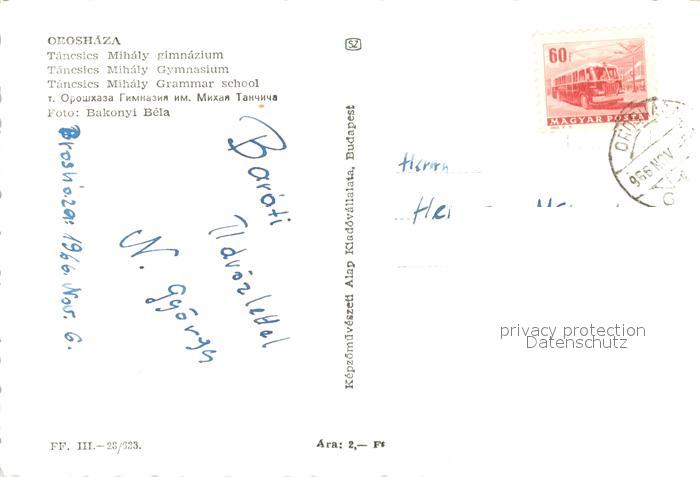 OROSHÁZA
Táncsics Mihály gimnázium
Táncsics Mihály Gymnasium
Táncsics Mihály Grammar school
т. Орошхаза Гимназия им. Михая Танчича
Foto: Bakonyi Béla
Orosháza: 1966. Nov. 6.
Baráti
Üdvözlettel
N. György
FF. III.—28/623.
SZ
Képzőművészeti Alap Kiadóvállalata, Budapest
Ára: 2,— Ft
60f
MAGYAR POSTA
966 NOV
Herrn
privacy protection
Datenschutz